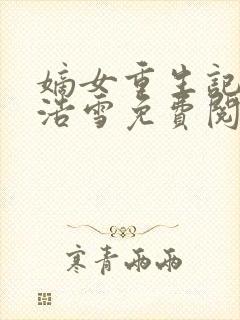 嫡女重生記
浩雪免費閱
寒青雨雨